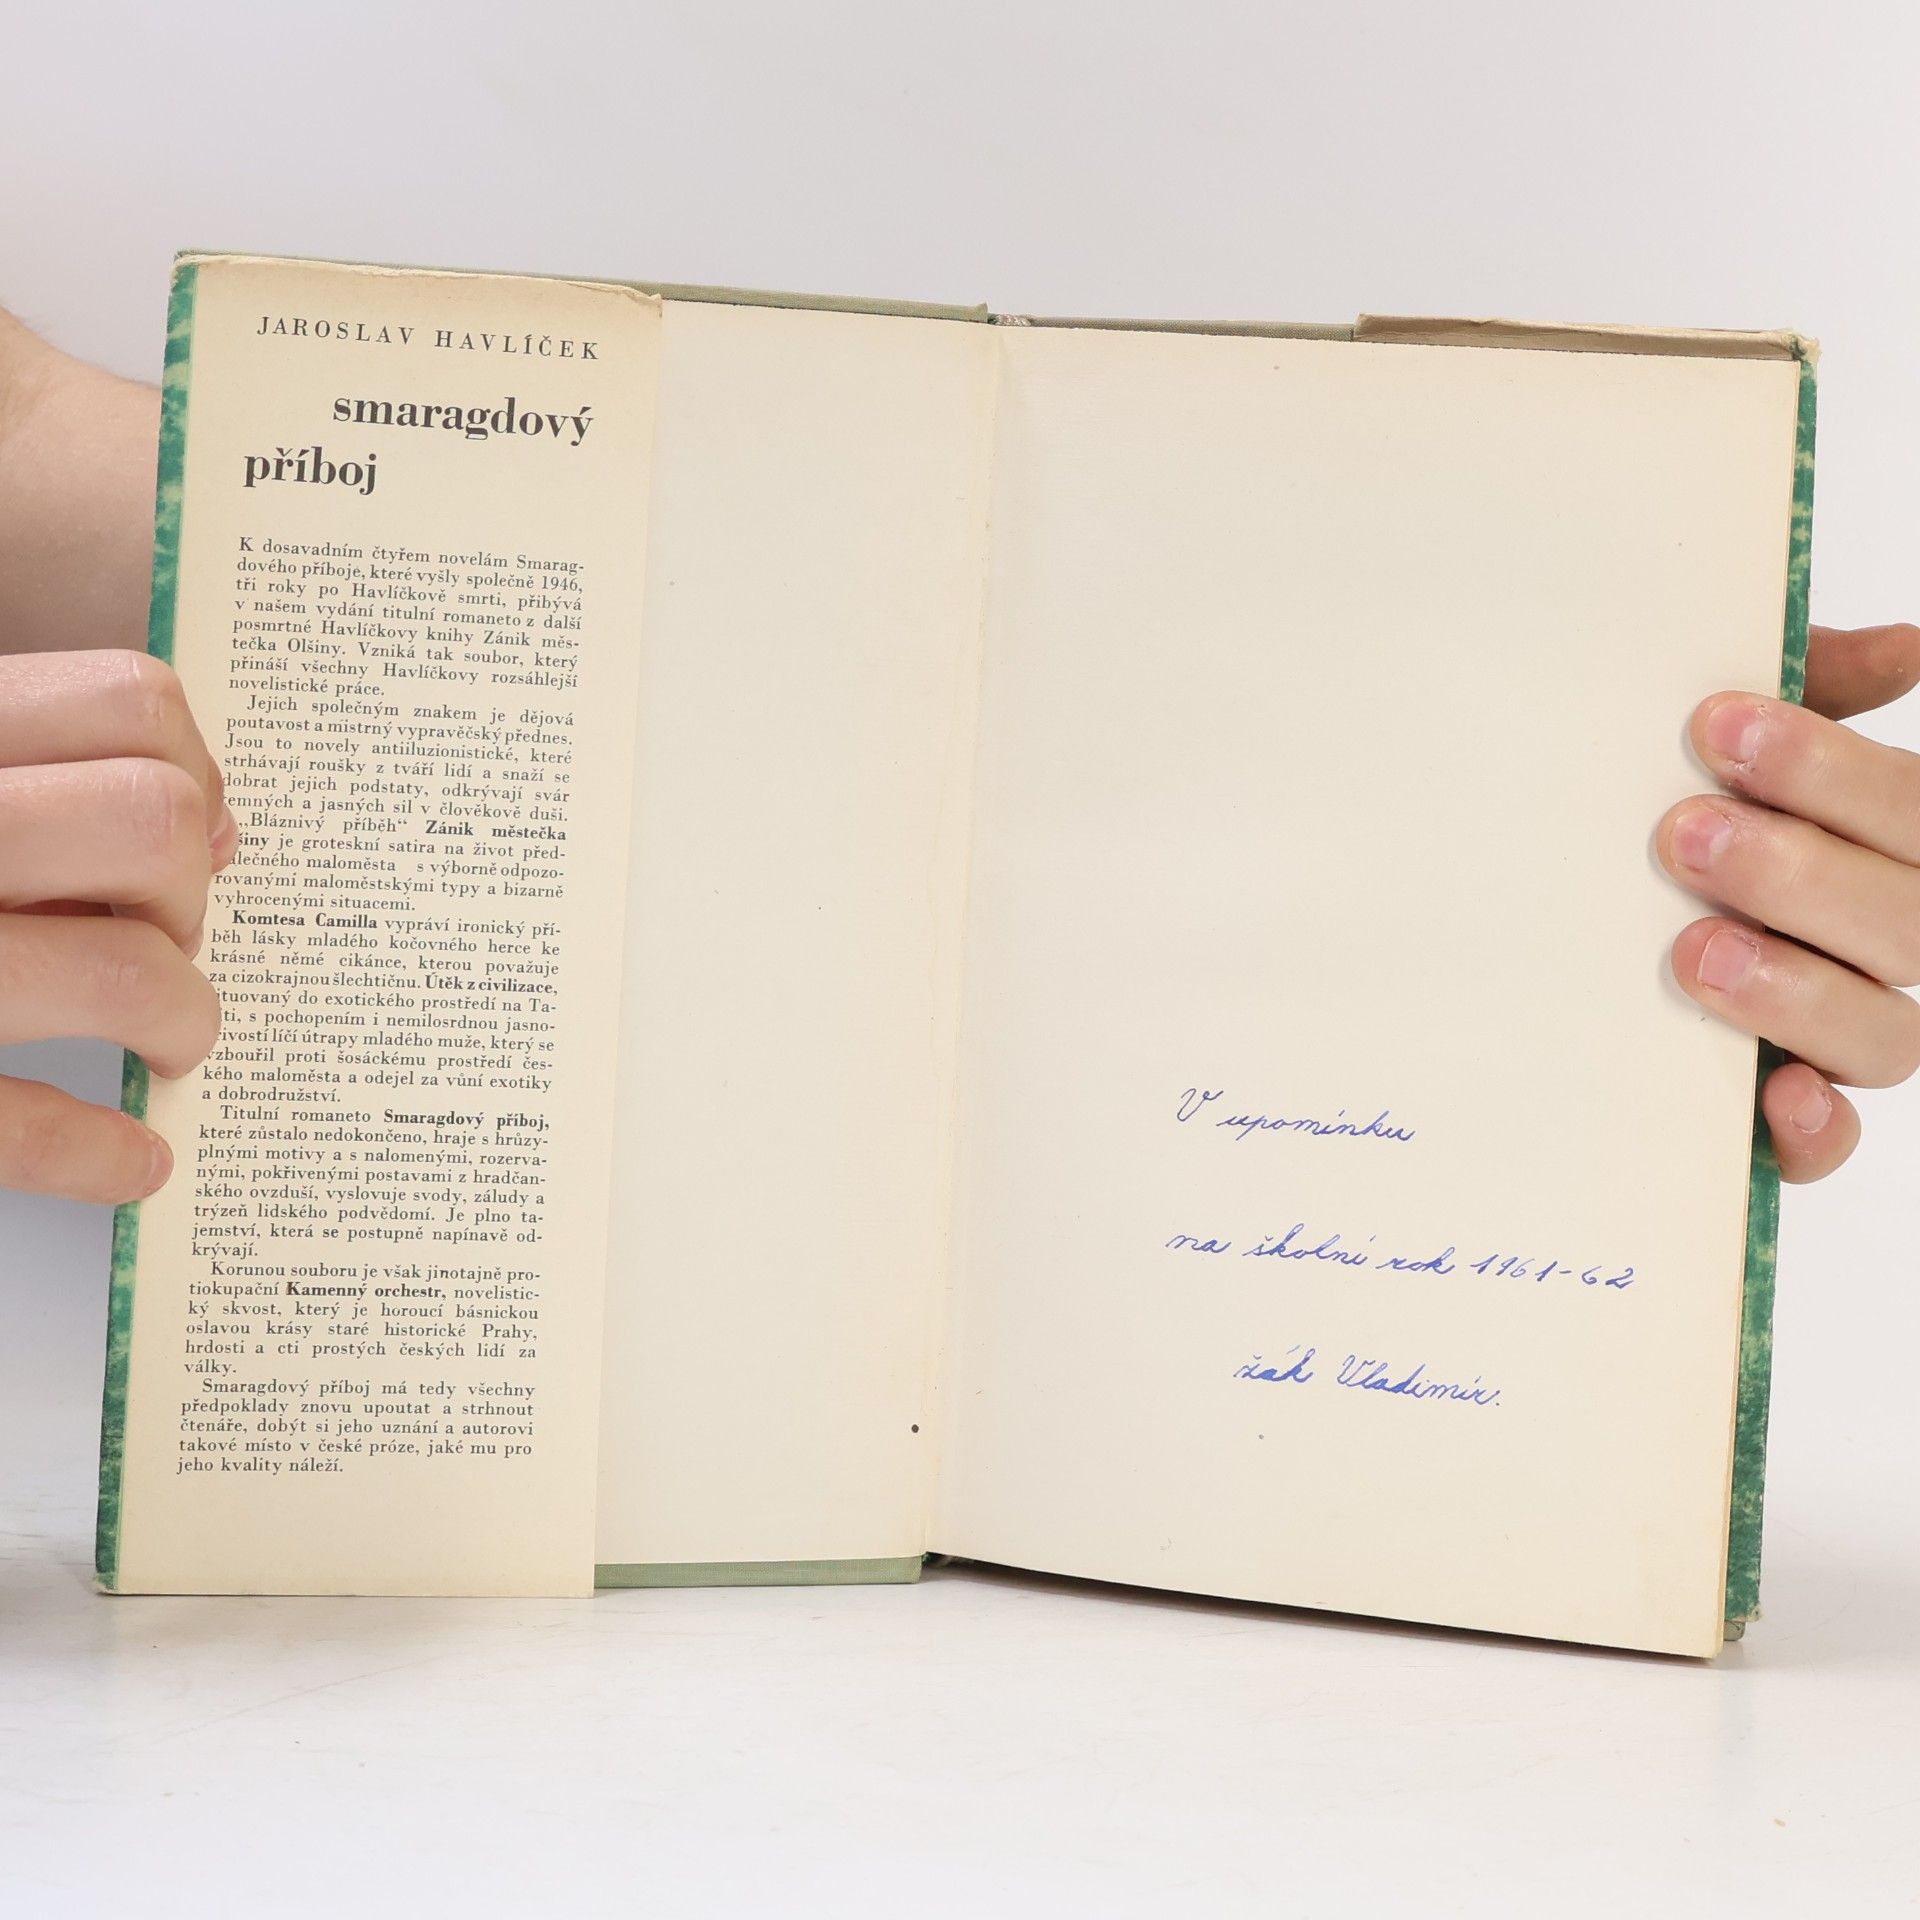 JAROSLAV HAVLÍČEK
smaragdový
příboj
K dosavadním čtyřem novelám Smarag-
dového příboje, které vyšly společně 1946,
tři roky po Havlíčkově smrti, přibývá
v našem vydání titulní romaneto z další
posmrtné Havlíčkovy knihy Zánik měs-
tečka Olšiny. Vzniká tak soubor, který
přináší všechny Havlíčkovy rozsáhlejší
novelistické práce.
Jejich společným znakem je dějová
poutavost a mistrný vypravěčský přednes.
Jsou to novely antiiluzionistické, které
strhávají roušky z tváří lidí a snaží se
dobrat jejich podstaty, odkrývají svár
temných a jasných sil v člověkově duši.
„Bláznivý příběh“ Zánik městečka
šiny je groteskní satira na život před-
álečného maloměsta s výborně odpozo-
rovanými maloměstskými typy a bizarně
vyhrocenými situacemi.
Komtesa Camilla vypráví ironický pří-
běh lásky mladého kočovného herce ke
krásné němé cikánce, kterou považuje
za cizokrajnou šlechtičnu. Útěk z civilizace,
ituovaný do exotického prostředí na Ta-
iti, s pochopením i nemilosrdnou jasno-
řivostí líčí útrapy mladého muže, který se
vzbouřil proti šosáckému prostředí čes-
kého maloměsta a odejel za vůní exotiky
a dobrodružství.
Titulní romaneto Smaragdový příboj,
které zůstalo nedokončeno, hraje s hrůzy-
plnými motivy a s nalomenými, rozerva-
nými, pokřivenými postavami z hradčan-
ského ovzduší, vyslovuje svody, záludy a
trýzeň lidského podvědomí. Je plno ta-
jemství, která se postupně napínavě od-
krývají.
Korunou souboru je však jinotajně pro-
tiokupační Kamenný orchestr, novelistic-
ký skvost, který je horoucí básnickou
oslavou krásy staré historické Prahy,
hrdosti a cti prostých českých lidí za
války.
Smaragdový příboj má tedy všechny
předpoklady znovu upoutat a strhnout
čtenáře, dobýt si jeho uznání a autorovi
takové místo v české próze, jaké mu pro
jeho kvality náleží.
V upomínku
na školní rok 1961-62
žák Vladimír.